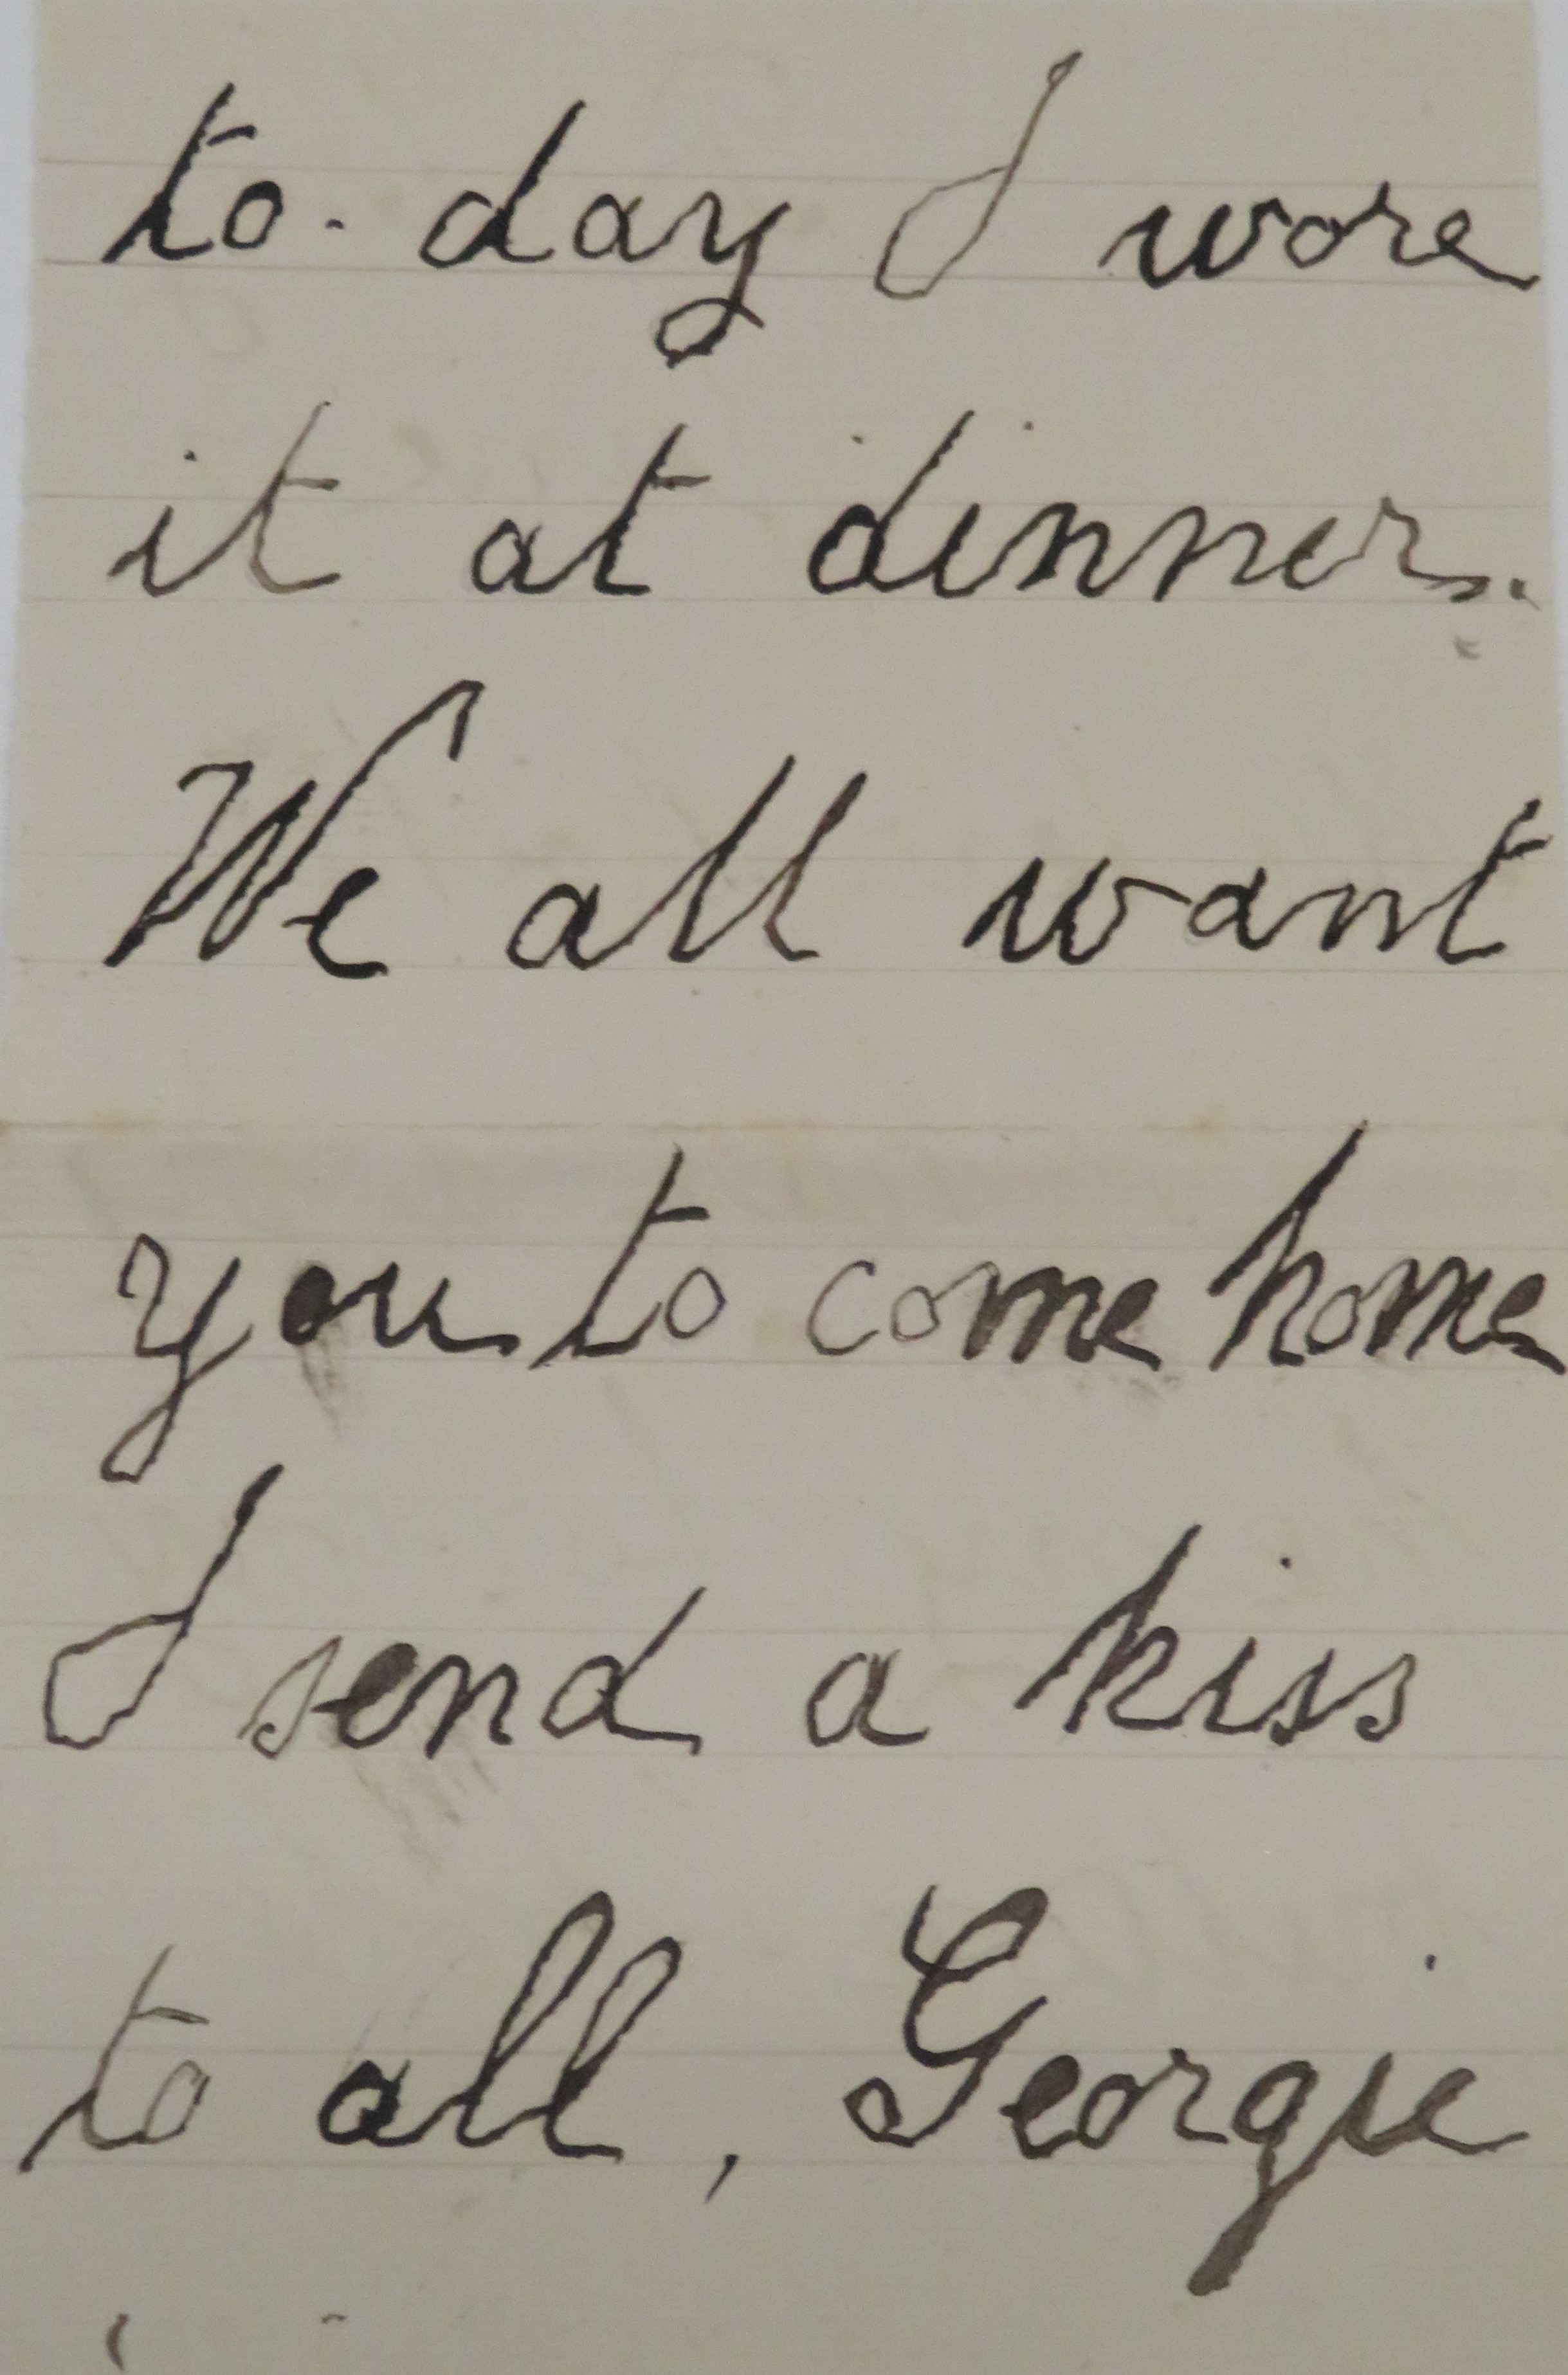 to-day I wore
it at dinner.
We all want
you to come home
I send a kiss
to all, Georgie